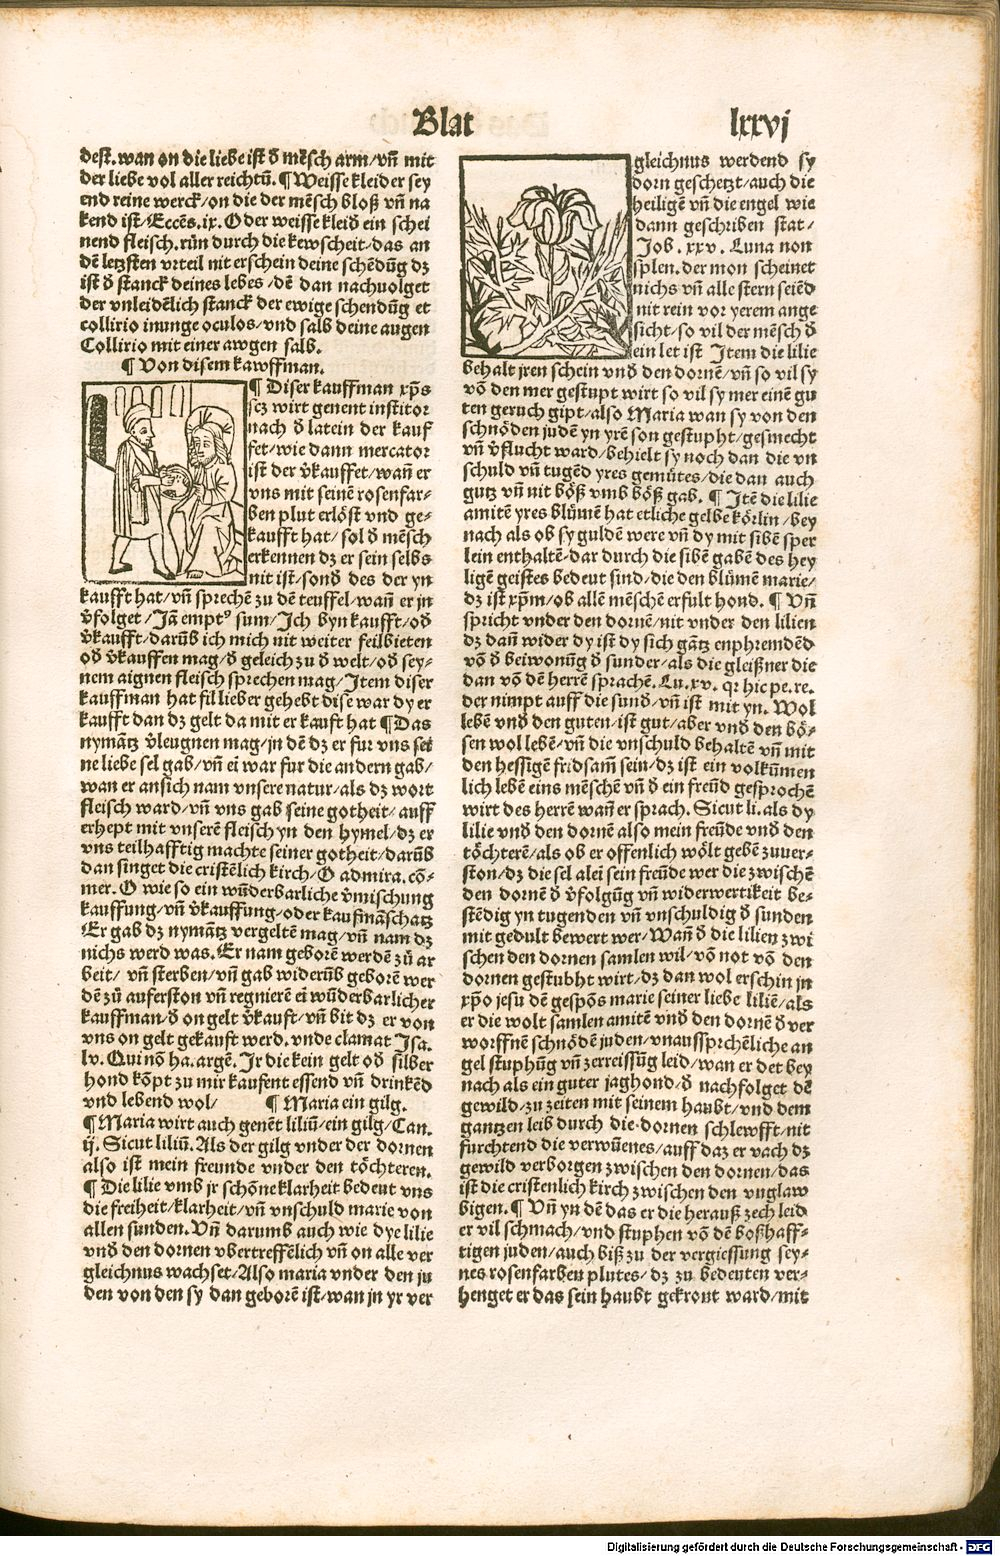 Blat lxxvj
dest. wan on die liebe ist d̕ mēsch arm/vn̄ mit
der liebe vol aller reichtū. ¶ Weisse kleider sey
end reine werck/on die der mēsch bloß vn̄ na
kend ist/Eccēs. ix. Oder weisse kleid̕ ein schei
nend fleisch. rün durch die kewscheit/das an
dē letzsten vrteil nit erschein deine schēdūg dz
ist d̕ stanck deines lebes/dē dan nachuolget
der vnleidēlich stanck der ewige schendūg et
collirio inunge oculos/vnd salb deine augen
Collirio mit einer awgen salb.
¶ Von disem kawffman.
¶ Diser kauffman xp̄s
sez wirt genent institor
nach d̕ latein der kauf
fet/wie dann mercator
ist der v̕kauffet/wan̄ er
vns mit seinē rosenfar⸗
ben plut erlöst vnd ge⸗
kaufft hat/sol d̕ mēsch
erkennen dz er sein selbs
nit ist/sond̕ des der yn
kaufft hat/vn̄ sprechē zu dē teuffel/wan̄ er jn
v̕folget/Jā emptꝰ sum/Jch byn kaufft/od̕
v̕kaufft/darūb ich mich nit weiter feilbieten
od̕ v̕kauffen mag/d̕ geleich zu d̕ welt/od̕ sey⸗
nem aignen fleisch sprechen mag/Jtem diser
kauffman hat fil lieber gehebt dise war dy er
kaufft dan dz gelt da mit er kauft hat ¶ Das
nymātz v̕leugnen mag/jn dē dz er fur vns sei
ne liebe sel gab/vn̄ ei war fur die andern gab/
wan er ansich nam vnsere natur/als dz wort
fleisch ward/vn̄ vns gab seine gotheit/auff
erhept mit vnserē fleisch yn den hymel/dz er
vns teilhafftig machte seiner gotheit/darūb
dan singet die cristēlich kirch/O admira. cō⸗
mer. O wie so ein wūderbarliche v̕mischung
kauffung/vn̄ v̕kauffung/oder kaufmāschatz
Er gab dz nymātz vergeltē mag/vn̄ nam dz
nichs werd was. Er nam geborē werdē zů ar
beit/ vn̄ sterben/vn̄ gab widerūb geborē wer
dē zů auferston vn̄ regnierē ei wūderbarlicher
kauffman/d̕ on gelt v̕kauft/vn̄ bit dz er von
vns on gelt gekauft werd. vnde clamat Jsa.
lv. Qui nō ha. argē. Jr die kein gelt od̕ silber
hond kōpt zu mir kaufent essend vn̄ drinkēd
vnd lebend wol/ ¶ Maria ein gilg.
¶ Maria wirt auch genēt liliū/ein gilg/Can.
ij. Sicut liliū. Als der gilg vnder der dornen
also ist mein freunde vnder den töchteren.
¶ Die lilie vmb jr schöne klarheit bedeut vns
die freiheit/klarheit/vn̄ vnschuld marie von
allen sunden. Vn̄ darumb auch wie dye lilie
vnd̕ den dornen vbertreffēlich vn̄ on alle ver
gleichnus wachset/Also maria vnder den ju
den von den sy dan geborē ist/wan jn yr ver
gleichnus werdend sy
dorn geschetzt/auch die
heiligē vn̄ die engel wie
dann geschriben stat/
Job. xxv. Luna non
splen. der mon scheinet
nichs vn̄ alle stern seiēd
nit rein vor yerem ange
sicht/so vil der mēsch d̕
ein let ist Jtem die lilie
behalt jren schein vnd̕ den dornē/vn̄ so vil sy
vō den mer gestupt wirt so vil sy mer einē gu
ten geruch gipt/also Maria wan sy von den
schnöden judē yn yrē son gestupht/gesmecht
vn̄ v̕flucht ward/behielt sy noch dan die vn
schuld vn̄ tugēd yres gemütes/die dan auch
gutz vn̄ nit böß vmb böß gab. ¶ Jtē die lilie
amitē yres blümē hat etliche gelbe körlin/bey
nach als ob sy guldē were vn̄ dy mit sibē sper
lein enthaltē/dar durch die sibē gabē des hey
ligē geistes bedeut sind/die den blümē marie/
dz ist xp̄m/ob allē mēschē erfult hond. ¶ Vn̄
spricht vnder den dornē/nit vnder den lilien
dz dan̄ wider dy ist dy sich gātz enphremdēd
vō d̕ beiwonūg d̕ sunder/als die gleißner die
dan vō dē herrē sprachē. Lu. xv. qr hic pe. re.
der nimpt auff die sund̕/vn̄ ist mit yn. Wol
lebē vnd̕ den guten/ist gut/aber vnd̕ den bö⸗
sen wol lebē/vn̄ die vnschuld behaltē vn̄ mit
den hessigē fridsam̄ sein/dz ist ein volkūmen
lich lebē eins mēschē vn̄ d̕ ein freūd gesprochē
wirt des herrē wan̄ er sprach. Sicut li. als dy
lilie vnd̕ den dornē also mein freūde vnd̕ den
töchterē/als ob er offenlich wölt gebē zuuer⸗
ston/dz die sel alei sein freūde wer die zwischē
den dornē d̕ v̕folgūg vn̄ widerwertikeit be⸗
stēdig yn tugenden vn̄ vnschuldig d̕ sunden
mit gedult bewert wer/Wan̄ d̕ die lilien zwi
schen den dornen samlen wil/vō not vō den
dornen gestubht wirt/dz dan wol erschin jn
xp̄o jesu dē gespōs marie seiner liebe liliē/als
er die wolt samlen amitē vnd̕ den dornē d̕ ver
worffnē schnödē juden/vnaussprchēliche an
gel stuphūg vn̄ zerreissūg leid/wan er det bey
nach als ein guter jaghond/d̕ nachfolget dē
gewild/zu zeiten mit seinem haubt/vnd dem
gantzen leib durch die dornen schlewfft/nit
furchtend die verwūenes/auff daz er vach dz
gewild verborgen zwischen den dornen/das
ist die cristenlich kirch zwischen den vnglaw
bigen. ¶ Vn̄ yn dē das er die herauß zech leid
er vil schmach/vnd stuphen vō dē boßhaff⸗
tigen juden/auch biß zu der vergiessung sey⸗
nes rosenfarben plutes/dz zu bedeuten ver⸗
henget er das sein haubt gekront ward/mit
Digitalisierung gefördert durch die Deutsche Forschungsgemeinschaft - DFG